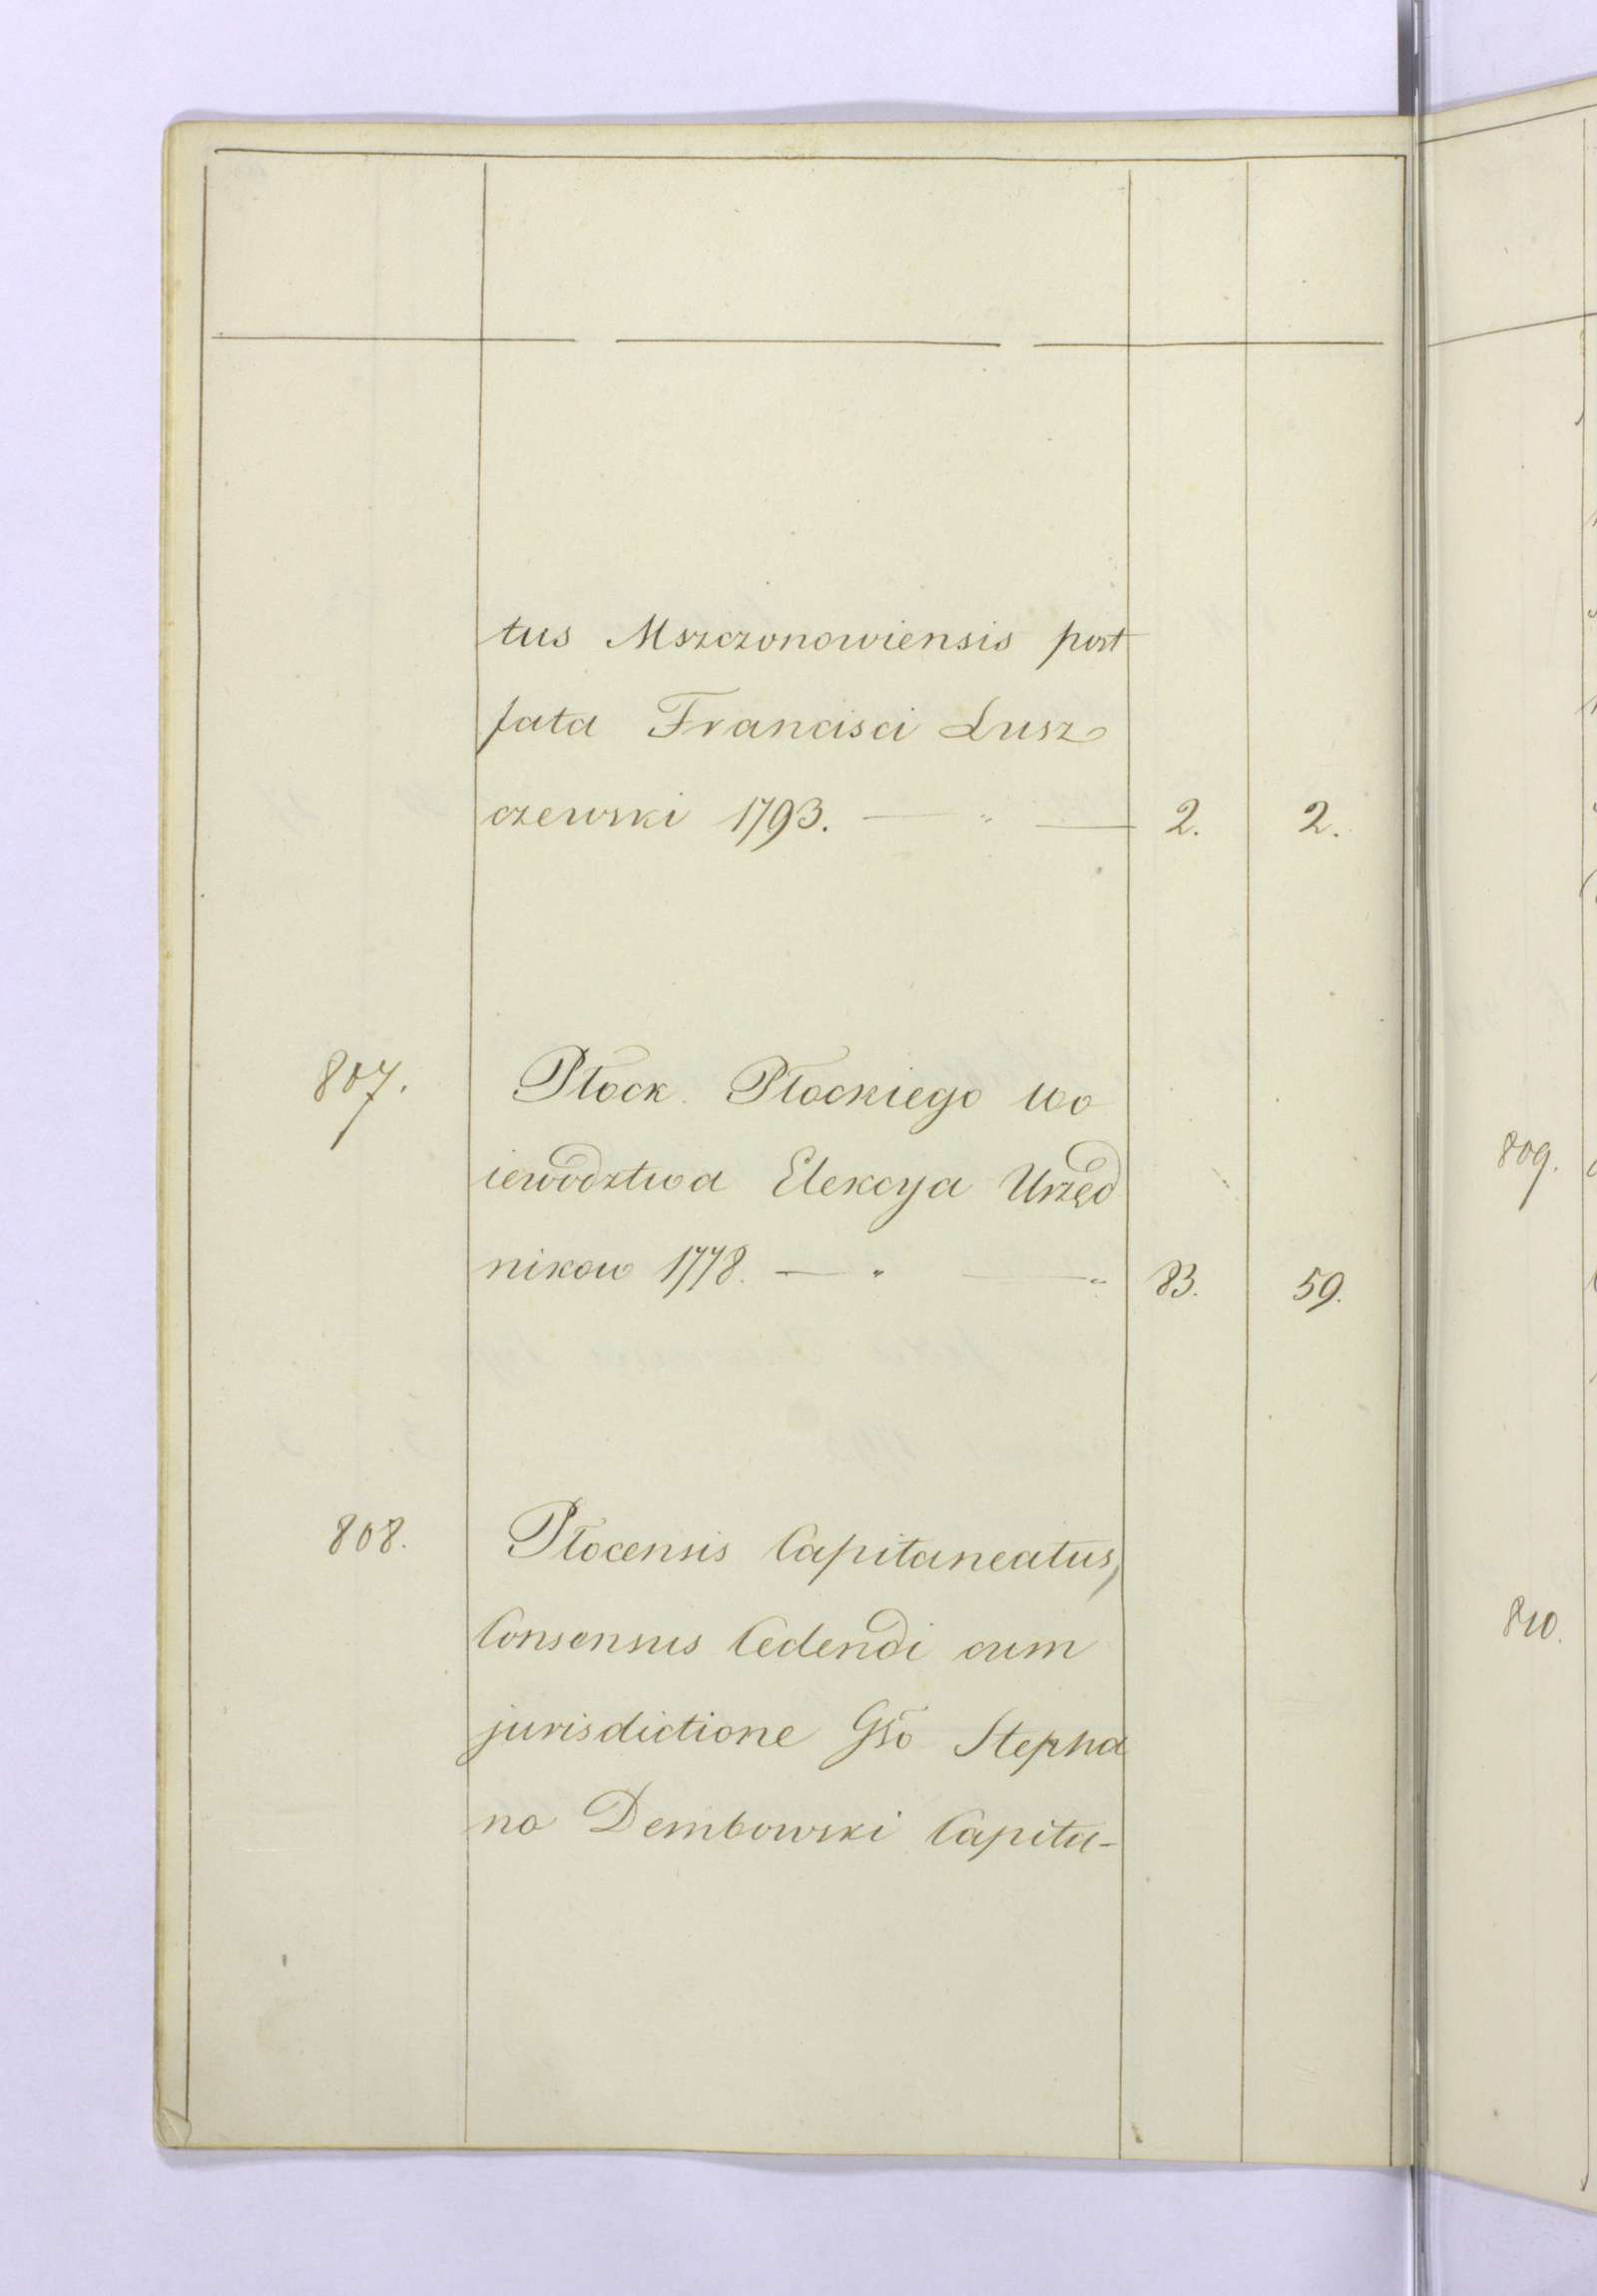 tus Mszczonowiensis post
fata Francisci Łusz
czewski 1793. — " — 2. 2.
807. Płock. Płockiego Wo
iewodztwa Elekcya Urzęd
nikow 1778. — " — " 83. 59.
808. Płocensis Capitaneatus,
Consensus Cedendi cum
jurisdictione Gso Stepha
no Dembowski Capitu-
809.
810.